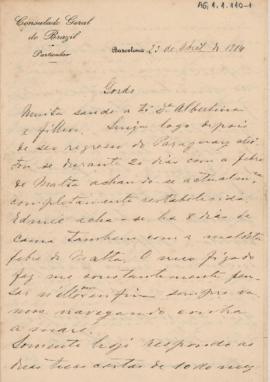 AG.1.1.110-1
Consulado Geral
do Brazil
Particular
Barcelona 23 de Abril de 1914
Gordo
Muita saude a ti Da Albertina
e filhos. Luiza logo depois
de seu regresso do Paraguay
se durante 20 dias com a febre
de Malta achando se actualmte
completamente restabelecida.
Edmée acha-se ha 8 dias de
cama tambem com a maldita
febre de Malta. O meu figado
faz me constantemente pen-
sar n'
nos navegando contra
a maré.
Somente hoje respondo as
duas tres cartas de 10 do mez